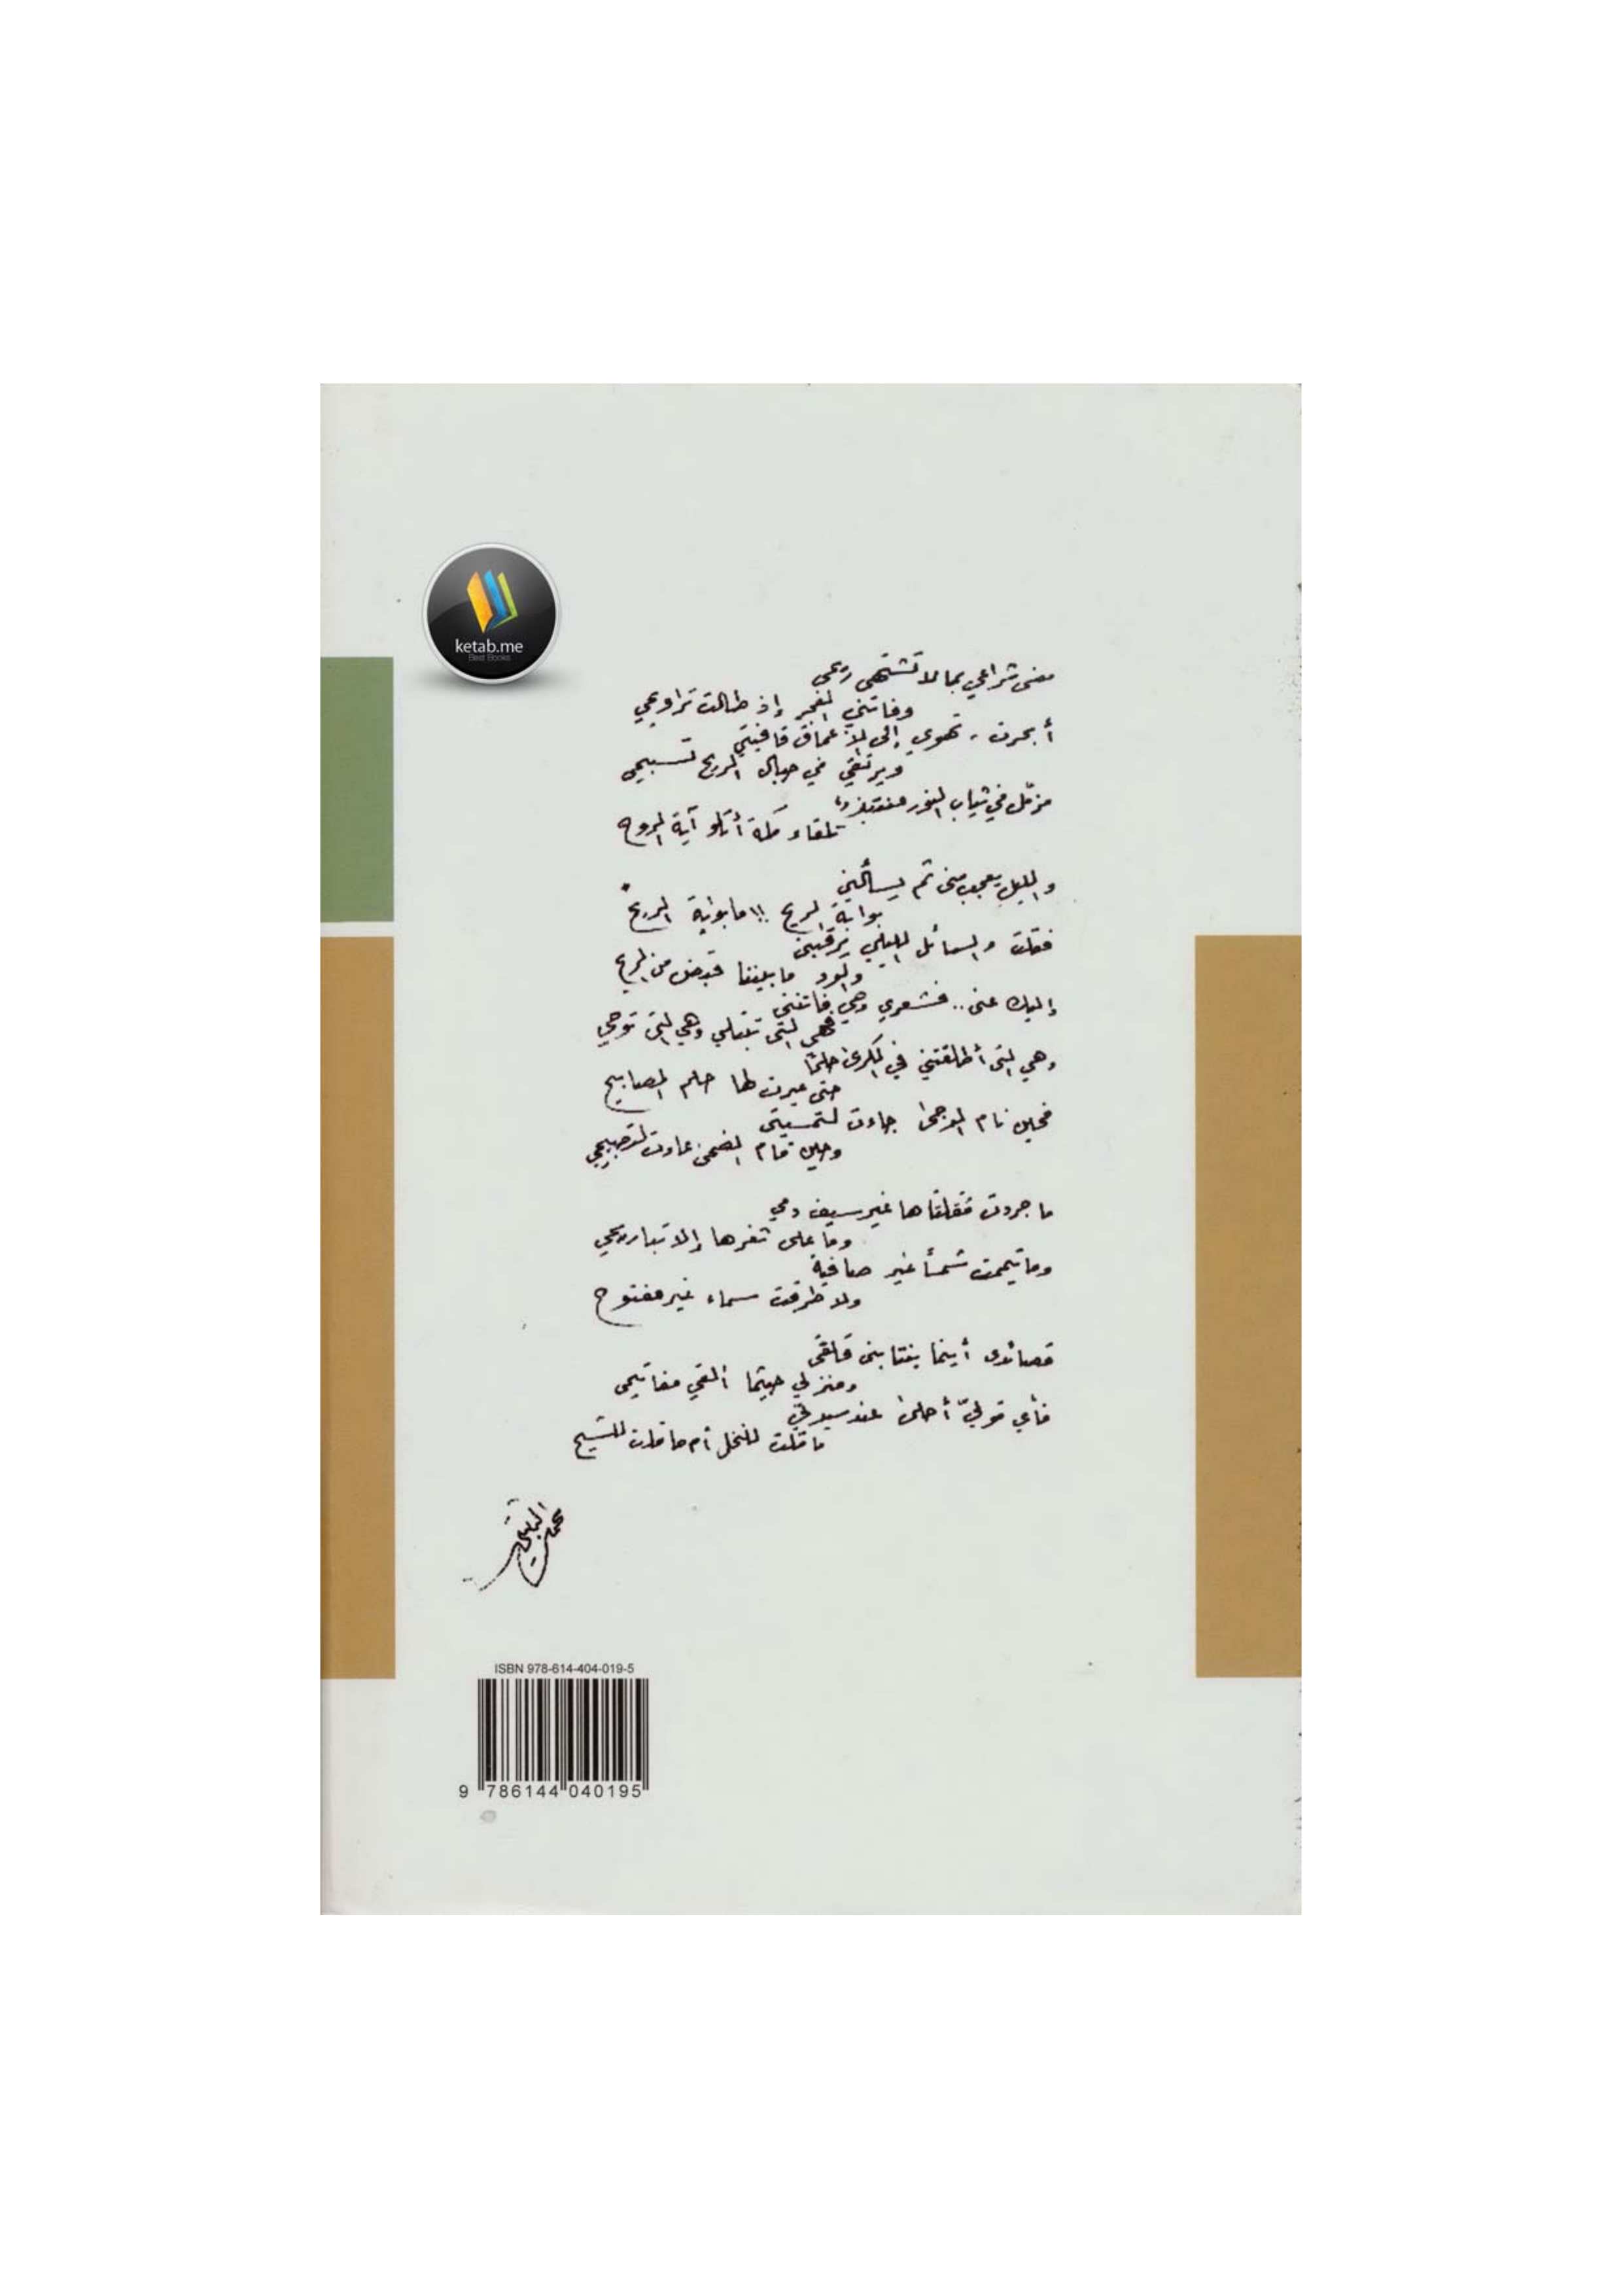 ketab.me
Best Books
مضى شراعي بما لا تشتهي ريحي
وفاتني الفجر إذ طالت تراويحي
أبحرت - تهوي إلى الأعماق قافيتي
ويرتقي في حبال الريح تسبيحي
مزمّل في ثياب النور منتبذ
تلقاء مكة أتلو آية الروح
والليل يعجب مني ثم يسألني
بوابة الريح !! ما بوابة الريح
فقلت والسائل الليلي يرقبني
والود ما بيننا قبض من الريح
إليك عني .. فشعري وحي فاتنتي
فهي التي تبتلي وهي التي توحي
وهي التي أطلقتني في الكرى حلمًا
حتى عبرت لها حلم المصابيح
فحين نام الدجى جاءت لتمسيتي
وحين قام الضحى عادت لتصبيحي
ما جردت مقلتاها غير سيف دمي
وما على ثغرها إلا تباريحي
وما تيممت شمسًا غير صافية
ولا طرقت سماء غير مفتوح
قصائدي أينما ينتابني قلقي
ومنزلي حيثما ألقي مفاتيحي
فأي قوليّ أحلى عند سيدتي
ما قلت للنخل أم ما قلت للشيح
محمد الثبيتي
ISBN 978-614-404-019-5
9 786144 040195